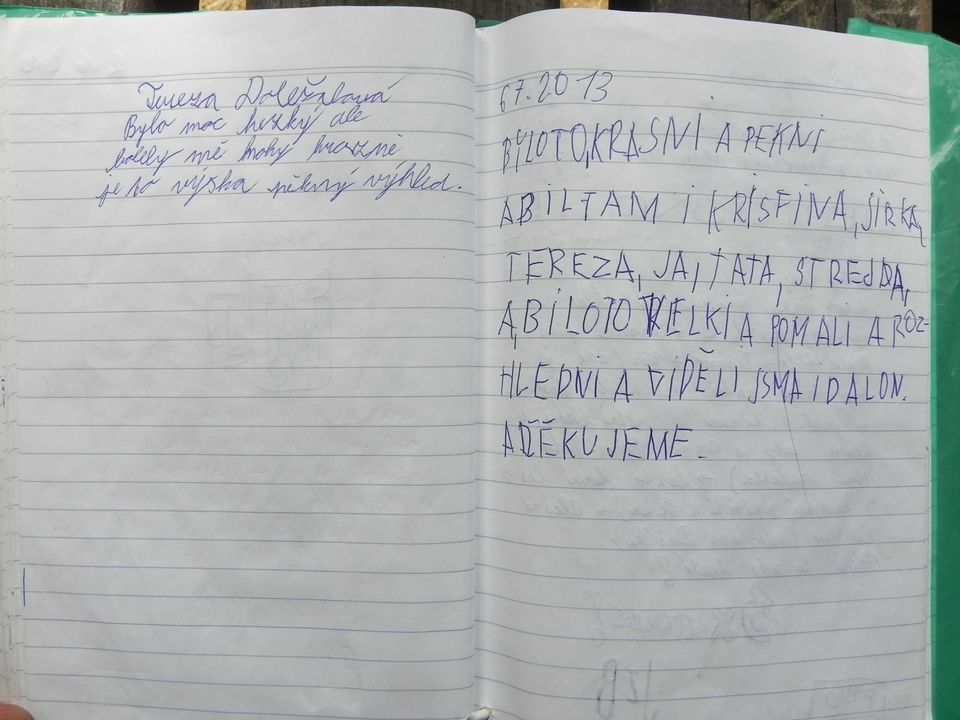 Tereza Doležalová
Bylo moc hezký ale
bolely mě nohy hrozně
je to výška pěkný výhled.
67.2013
BYLOTO,KRASNI A PEKNI
ABILTAM I KRISTINA, SIRKA,
TEREZA, JA, TATA, STREJDA,
A,BILOTO VELKI A POMALI A ROZ-
HLEDNI A VIDĚLI JSMA I DALON.
A DĚKUJEME.